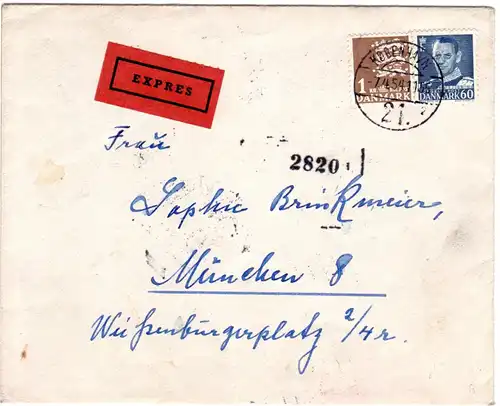 EXPRES
1
DANMARK
DANMARK 60
KØBENHAVN
-7.4.54.
21.
Frau
2820
Sophie Brinkmeier,
München 8
Weißenburgerplatz 2/4 r.